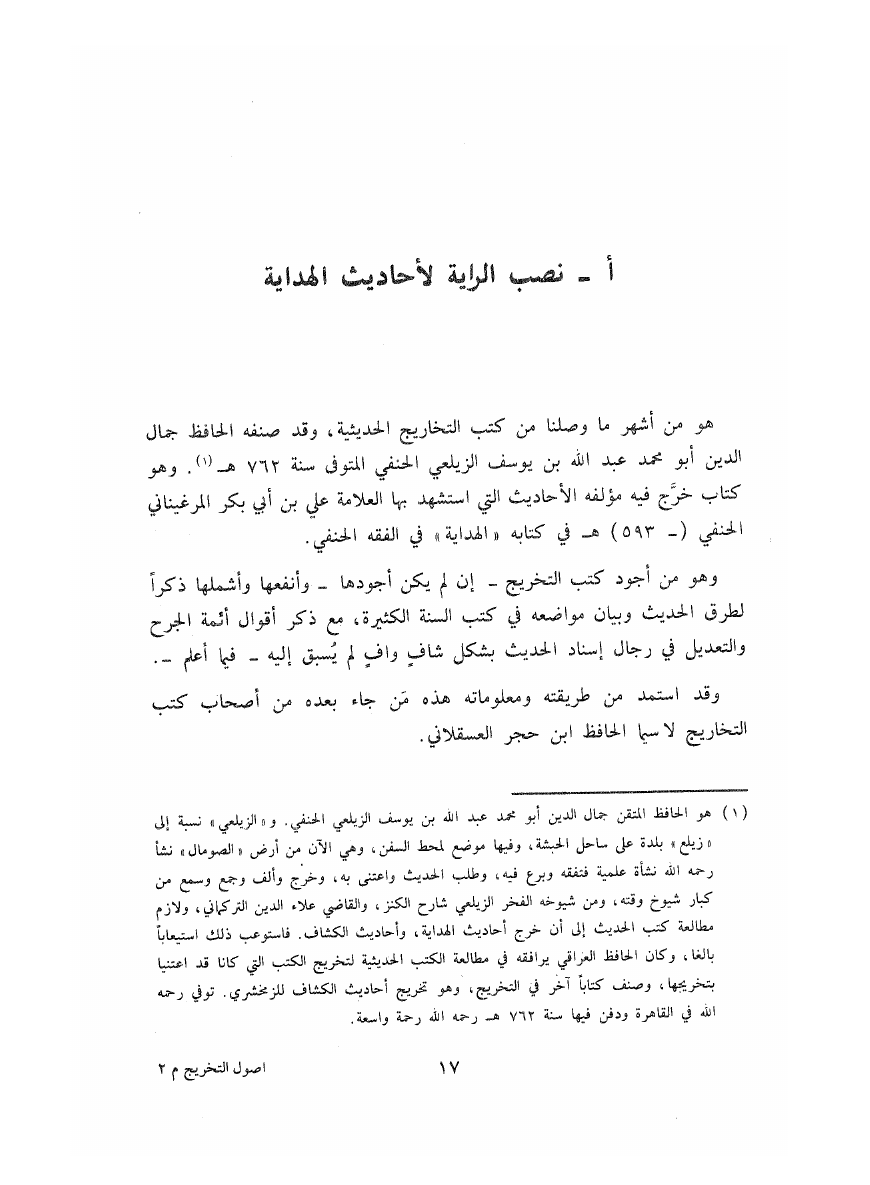 أ ـ نصب الراية لأحاديث الهداية
هو من أشهر ما وصلنا من كتب التخاريج الحديثية، وقد صنفه الحافظ جمال
الدين أبو محمد عبد الله بن يوسف الزيلعي الحنفي المتوفى سنة ٧٦٢ هـ(١). وهو
كتاب خرَّج فيه مؤلفه الأحاديث التي استشهد بها العلامة علي بن أبي بكر المرغيناني
الحنفي (ـ ٥٩٣) هـ في كتابه «الهداية» في الفقه الحنفي.
وهو من أجود كتب التخريج ـ إن لم يكن أجودها ـ وأنفعها وأشملها ذكراً
لطرق الحديث وبيان مواضعه في كتب السنة الكثيرة، مع ذكر أقوال أئمة الجرح
والتعديل في رجال إسناد الحديث بشكل شافٍ وافٍ لم يُسبق إليه ـ فيما أعلم ـ.
وقد استمد من طريقته ومعلوماته هذه مَن جاء بعده من أصحاب كتب
التخاريج لا سيما الحافظ ابن حجر العسقلاني.
(١) هو الحافظ المتقن جمال الدين أبو محمد عبد الله بن يوسف الزيلعي الحنفي. و«الزيلعي» نسبة إلى
«زيلع» بلدة على ساحل الحبشة، وفيها موضع لمحط السفن، وهي الآن من أرض «الصومال» نشأ
رحمه الله نشأة علمية فتفقه وبرع فيه، وطلب الحديث واعتنى به، وخرج وألف وجمع وسمع من
كبار شيوخ وقته، ومن شيوخه الفخر الزيلعي شارح الكنز، والقاضي علاء الدين التركماني، ولازم
مطالعة كتب الحديث إلى أن خرج أحاديث الهداية، وأحاديث الكشاف. فاستوعب ذلك استيعاباً
بالغا، وكان الحافظ العراقي يرافقه في مطالعة الكتب الحديثية لتخريج الكتب التي كانا قد اعتنيا
بتخريجها، وصنف كتاباً آخر في التخريج، وهو تخريج أحاديث الكشاف للزمخشري. توفي رحمه
الله في القاهرة ودفن فيها سنة ٧٦٢ هـ رحمه الله رحمة واسعة.
١٧
اصول التخريج م ٢